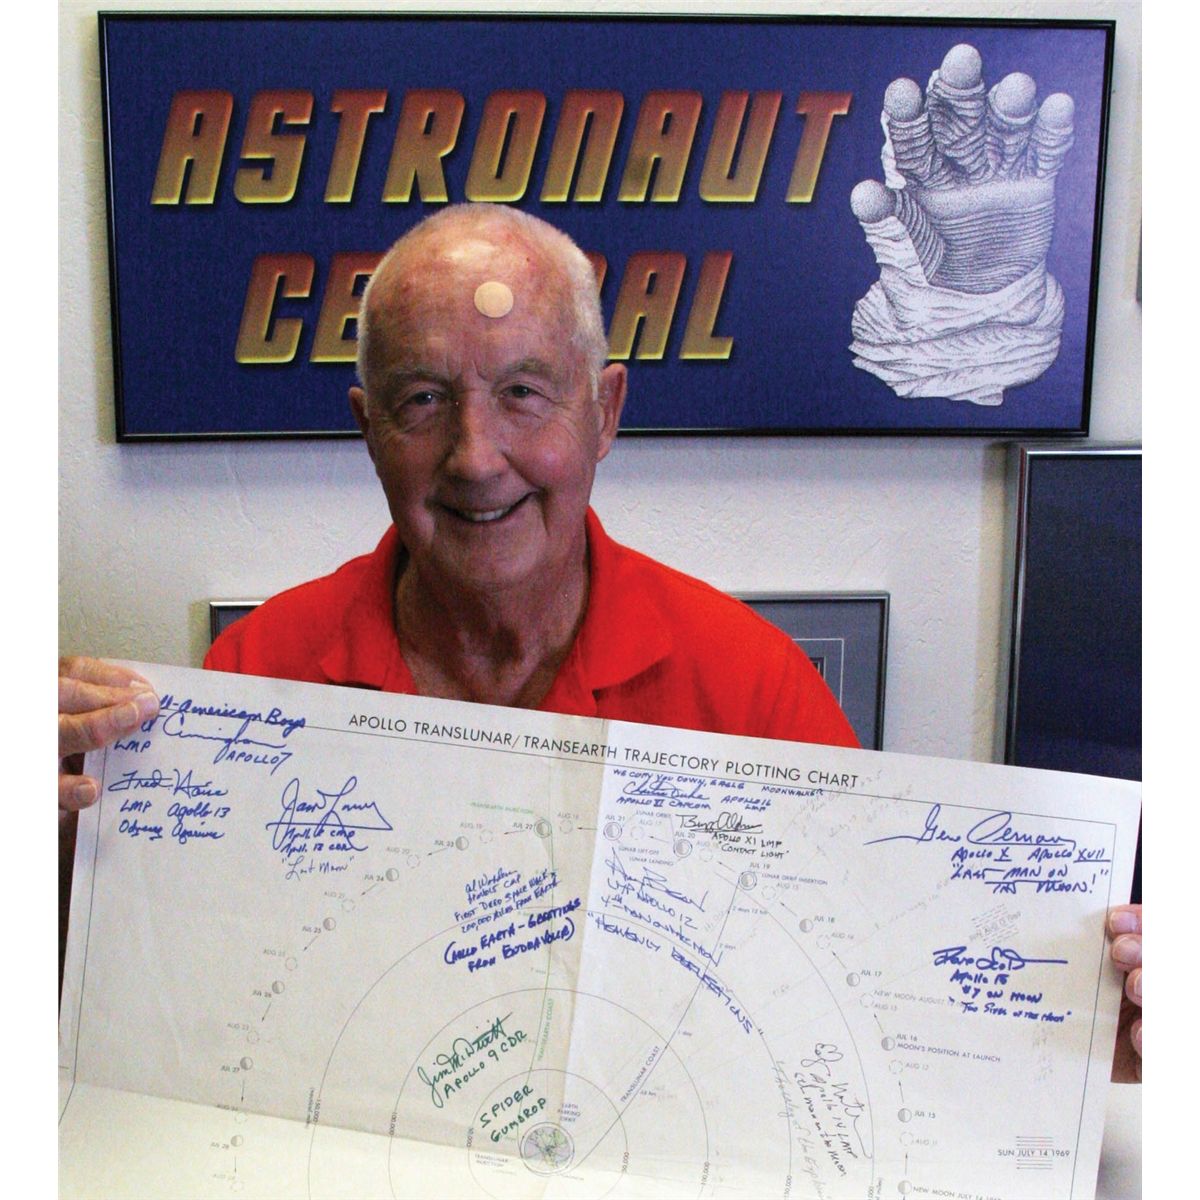 ASTRONAUT
CENTRAL
APOLLO TRANSLUNAR/TRANSEARTH TRAJECTORY PLOTTING CHART
ll-American Boys
Cunningham
LMP
APOLLO 7
Fred Haise
LMP Apollo 13
Odyssey Aquarius
Apollo 8 CMP
Apollo 13 CDR
"Lost Moon"
TRANSEARTH INJECTION
WE COPY YOU DOWN, EAGLE
MOONWALKER
Charlie Duke APOLLO 16
LMP
APOLLO XI CAPCOM
Buzz Aldrin
APOLLO XI LMP
"CONTACT LIGHT"
Gene Cernan
APOLLO X APOLLO XVII
"LAST MAN ON
THE MOON!"
Al Worden
FIRST DEEP SPACE WALK
200,000 MILES FROM EARTH
(HELLO EARTH - GREETINGS
FROM ENDEAVOUR)
LMP APOLLO 12
4th MAN ON THE MOON
"HEAVENLY REFLECTIONS"
Dave Scott
Apollo 15
#7 ON MOON
Jim McDivitt
APOLLO 9 CDR
SPIDER
GUMDROP
LUNAR ORBIT
LUNAR LIFT OFF
LUNAR LANDING
LUNAR ORBIT INSERTION
JUL 22
AUG 18
JUL 21
AUG 17
JUL 20
JUL 19
AUG 15
JUL 18
AUG 14
JUL 17
NEW MOON AUGUST
AUG 13
JUL 16
MOON'S POSITION AT LAUNCH
AUG 12
JUL 15
AUG 11
SUN JULY 14 1969
NEW MOON JULY 14
AUG 19
JUL 23
AUG 20
JUL 24
AUG 21
JUL 25
AUG 22
JUL 26
AUG 23
JUL 27
AUG 24
JUL 28
TRANSEARTH COAST
TRANSLUNAR COAST
EARTH
PARKING
ORBIT
TRANSLUNAR
INJECTION
150,000
50,000
100,000